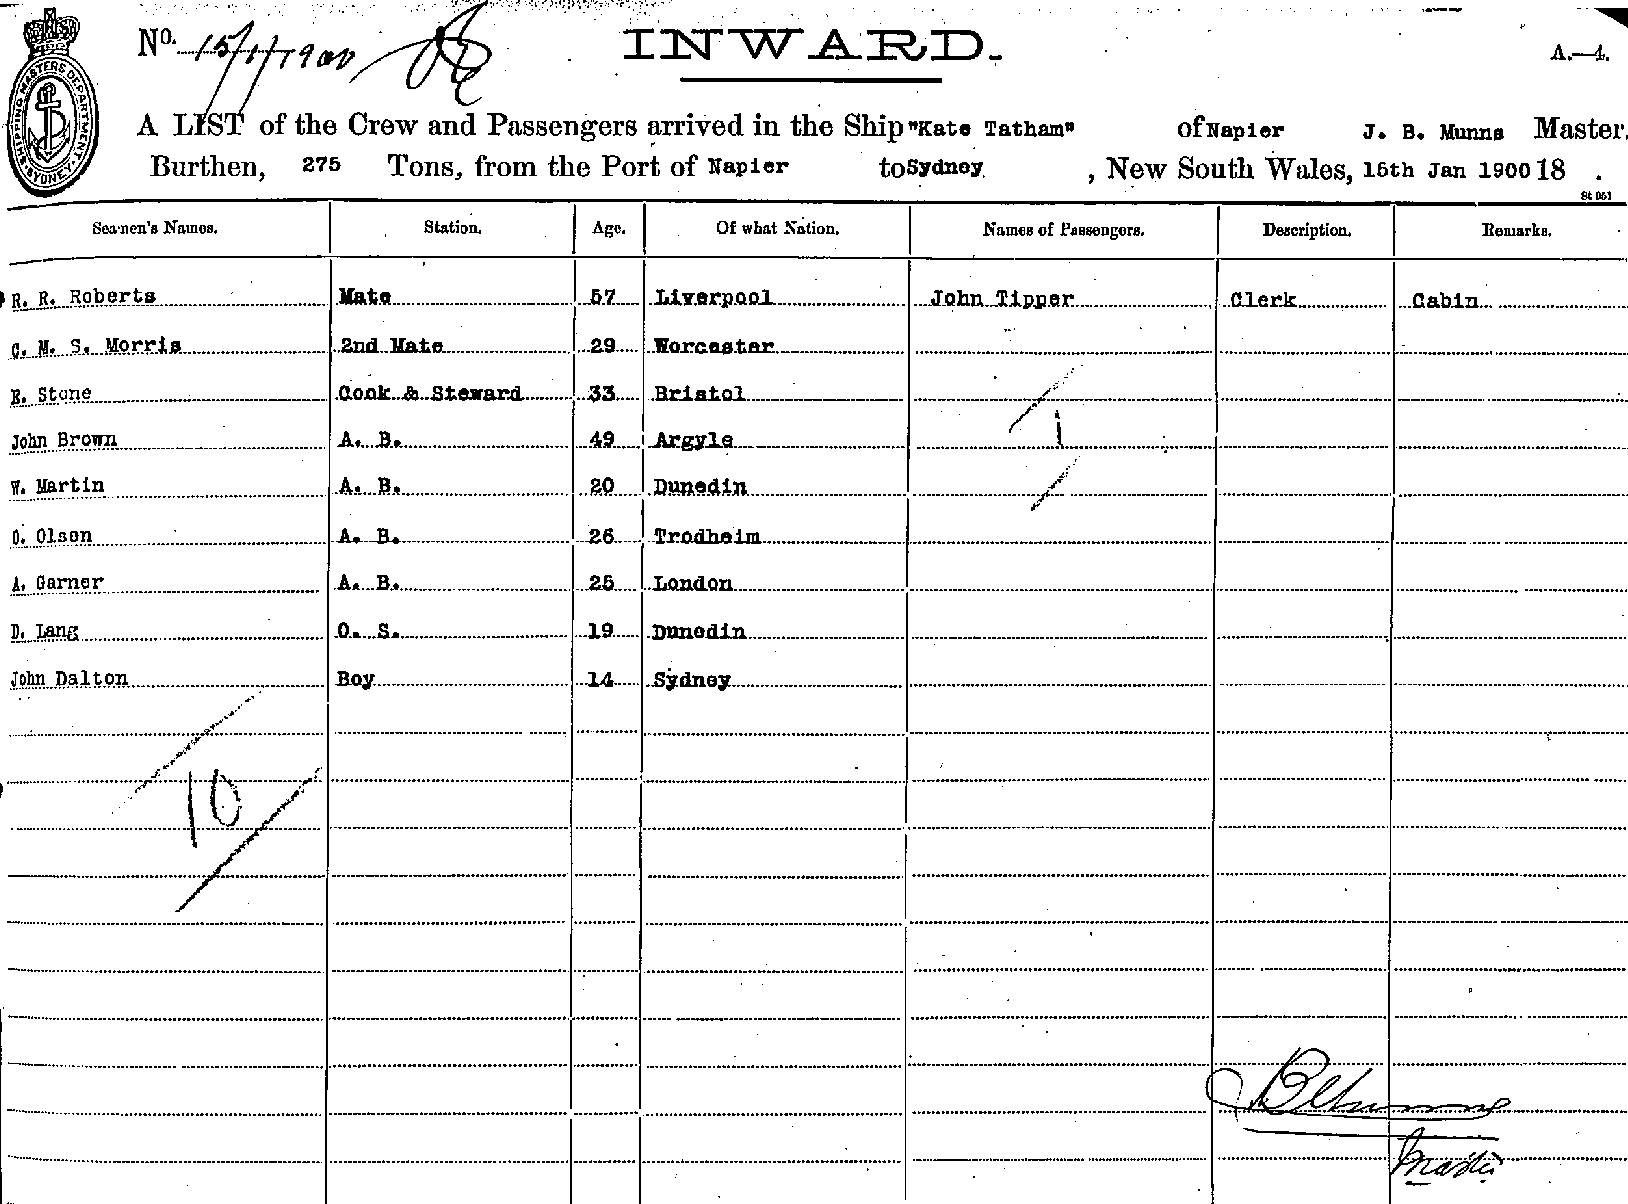 No. 15/1/1900
INWARD.
A.—4.
SHIPPING MASTERS DEPARTMENT. SYDNEY
A LIST of the Crew and Passengers arrived in the Ship "Kate Tatham" of Napier J. B. Munns Master,
Burthen, 275 Tons, from the Port of Napier to Sydney , New South Wales, 15th Jan 1900 18 .
Seamen's Names. Station. Age. Of what Nation. Names of Passengers. Description. Remarks.
R. R. Roberts Mate 57 Liverpool John Tipper Clerk Cabin
C. M. S. Morris 2nd Mate 29 Worcester
E. Stone Cook & Steward 33 Bristol
John Brown A. B. 49 Argyle
W. Martin A. B. 20 Dunedin
O. Olsen A. B. 26 Trodheim
A. Garner A. B. 25 London
D. Lang O. S. 19 Dunedin
John Dalton Boy 14 Sydney
1
10
JBMunns
Master